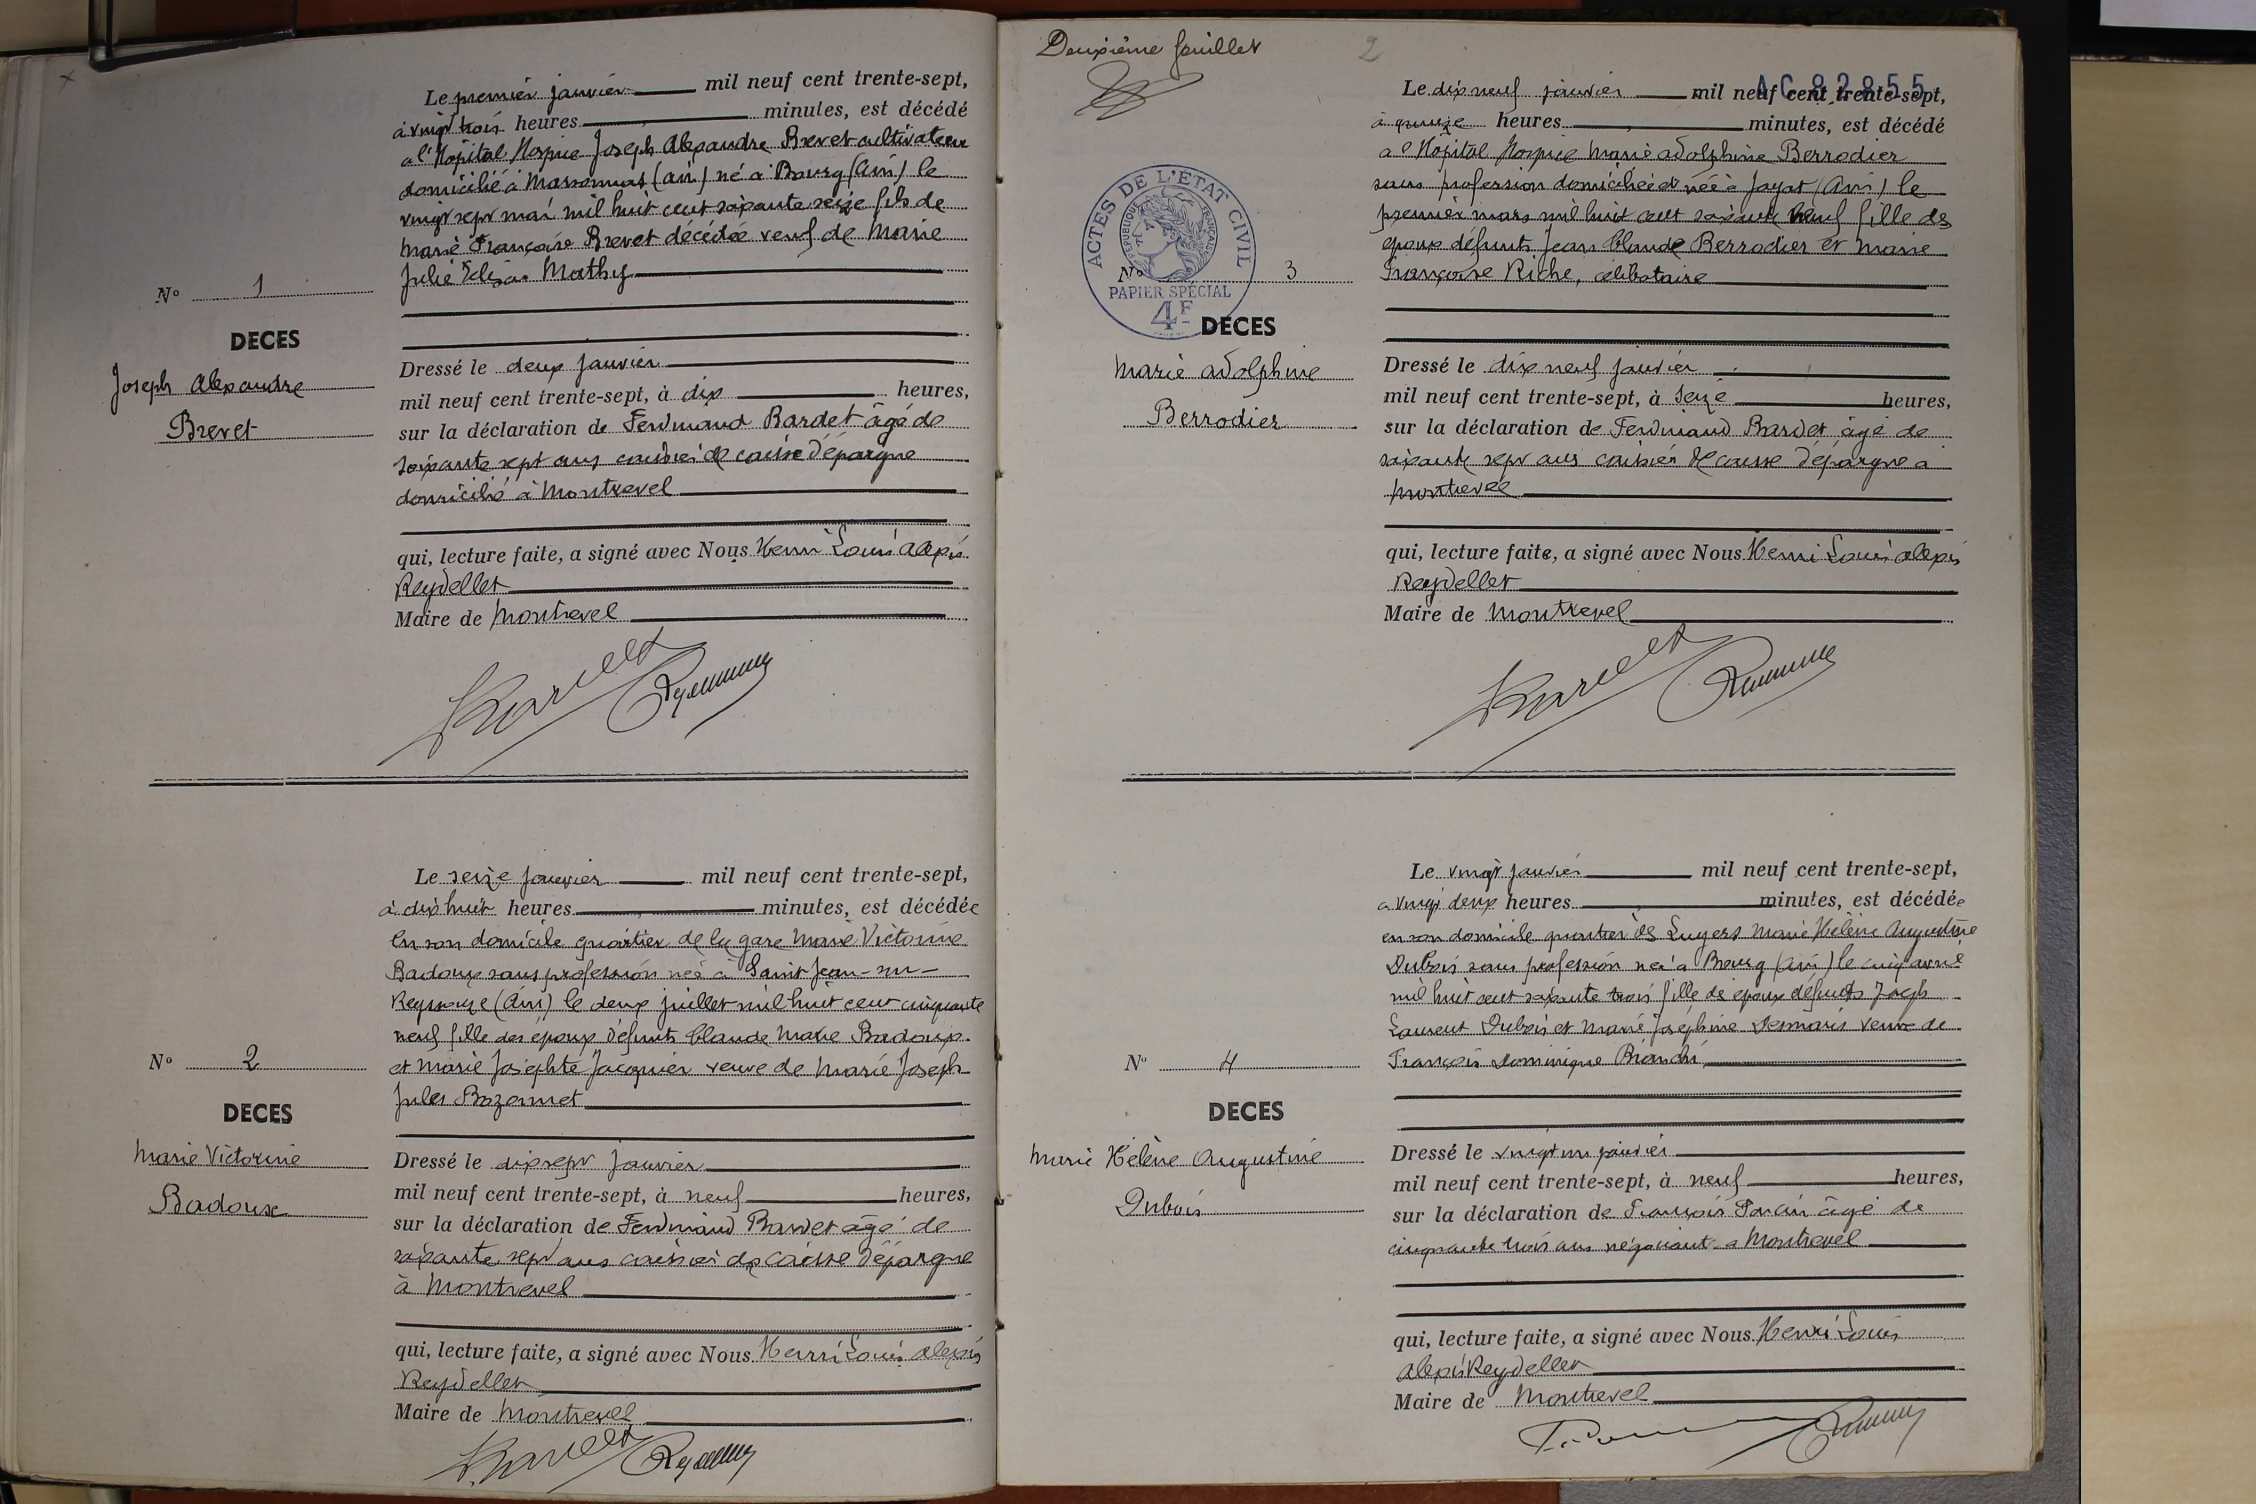 Le premier janvier mil neuf cent trente-sept,
à vingt trois heures minutes, est décédé
a l'Hôpital Hospice Joseph Alexandre Brevet cultivateur
domicilié à Marsonnas (ain) né à Bourg (Ain) le
vingt sept mai mil huit cent soixante seize fils de
Marie Françoise Brevet décédée veuf de Marie
Julie Mathy
No 1
DECES
Joseph Alexandre
Brevet
Dressé le deux janvier
mil neuf cent trente-sept, à dix heures,
sur la déclaration de Ferdinand Bardet âgé de
soixante sept ans caissier de caisse d'épargne
domicilié à Montrevel
qui, lecture faite, a signé avec Nous Henri Louis Alexis
Reydellet
Maire de Montrevel
Le seize janvier mil neuf cent trente-sept,
à dix huit heures minutes, est décédée
en son domicile quartier de la gare Marie Victorine
Badoux sans profession née à Saint Jean-sur-
Reyssouze (Ain) le deux juillet mil huit cent cinquante
neuf fille des époux défunts Claude Marie Badoux
et Marie Josephte Jacquier veuve de Marie Joseph
Jules Bozonnet
No 2
DECES
Marie Victorine
Badoux
Dressé le dix sept janvier
mil neuf cent trente-sept, à neuf heures,
sur la déclaration de Ferdinand Bardet âgé de
soixante sept ans caissier de caisse d'épargne
à Montrevel
qui, lecture faite, a signé avec Nous Henri Louis Alexis
Reydellet
Maire de Montrevel
Deuxième feuillet
2
AC 82855
Le dix neuf janvier mil neuf cent trente-sept,
à quinze heures minutes, est décédé
a l'Hôpital Hospice Marie Adolphine Berrodier
sans profession domiciliée et née à Jayat (Ain) le
premier mars mil huit cent soixante neuf fille des
époux défunts Jean Claude Berrodier et Marie
Françoise Riche, célibataire
ACTES DE L'ETAT CIVIL
REPUBLIQUE FRANÇAISE
PAPIER SPÉCIAL
4F
No 3
DECES
Marie Adolphine
Berrodier
Dressé le dix neuf janvier
mil neuf cent trente-sept, à seize heures,
sur la déclaration de Ferdinand Bardet âgé de
soixante sept ans caissier de caisse d'épargne à
Montrevel
qui, lecture faite, a signé avec Nous Henri Louis Alexis
Reydellet
Maire de Montrevel
Le vingt janvier mil neuf cent trente-sept,
a vingt deux heures minutes, est décédée
en son domicile quartier des Luyers Marie Hélène Augustine
Dubois sans profession née à Bourg (Ain) le cinq avril
mil huit cent soixante trois fille de époux défunts Joseph
Laurent Dubois et Marie Joséphine Desmaris veuve de
François Dominique Bianchi
No 4
DECES
Marie Hélène Augustine
Dubois
Dressé le vingt un janvier
mil neuf cent trente-sept, à neuf heures,
sur la déclaration de François âgé de
cinquante trois ans négociant a Montrevel
qui, lecture faite, a signé avec Nous Henri Louis
Alexis Reydellet
Maire de Montrevel